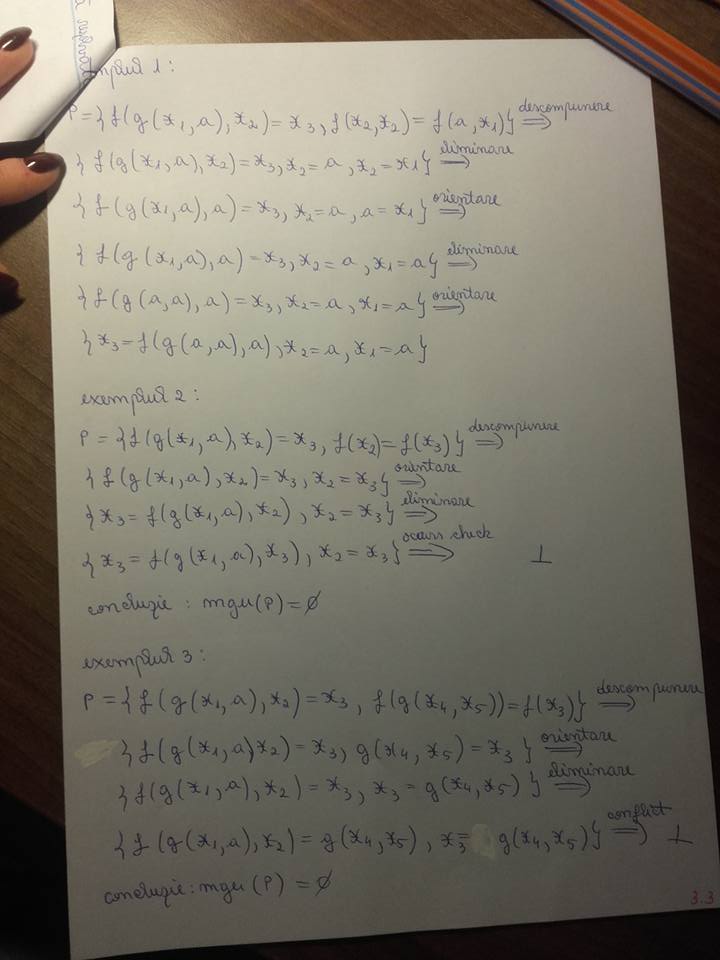 mplul 1:
P = { f(g(x₁, a), x₂) = x₃, f(x₂, x₂) = f(a, x₁) } descompunere ⟹
{ f(g(x₁, a), x₂) = x₃, x₂ = a, x₂ = x₁ } eliminare ⟹
{ f(g(x₁, a), a) = x₃, x₂ = a, a = x₁ } orientare ⟹
{ f(g(x₁, a), a) = x₃, x₂ = a, x₁ = a } eliminare ⟹
{ f(g(a, a), a) = x₃, x₂ = a, x₁ = a } orientare ⟹
{ x₃ = f(g(a, a), a), x₂ = a, x₁ = a }
exemplul 2:
P = { f(g(x₁, a), x₂) = x₃, f(x₂) = f(x₃) } descompunere ⟹
{ f(g(x₁, a), x₂) = x₃, x₂ = x₃ } orientare ⟹
{ x₃ = f(g(x₁, a), x₂), x₂ = x₃ } eliminare ⟹
{ x₃ = f(g(x₁, a), x₃), x₂ = x₃ } occurs check ⟹ ⊥
concluzie: mgu(P) = ∅
exemplul 3:
P = { f(g(x₁, a), x₂) = x₃, f(g(x₄, x₅)) = f(x₃) } descompunere ⟹
{ f(g(x₁, a) x₂) = x₃, g(x₄, x₅) = x₃ } orientare ⟹
{ f(g(x₁, a), x₂) = x₃, x₃ = g(x₄, x₅) } eliminare ⟹
{ f(g(x₁, a), x₂) = g(x₄, x₅), x₃ = g(x₄, x₅) } conflict ⟹ ⊥
concluzie: mgu(P) = ∅
3.3